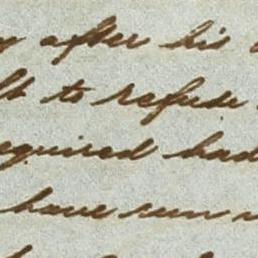 after his
to refuse
required had
have run